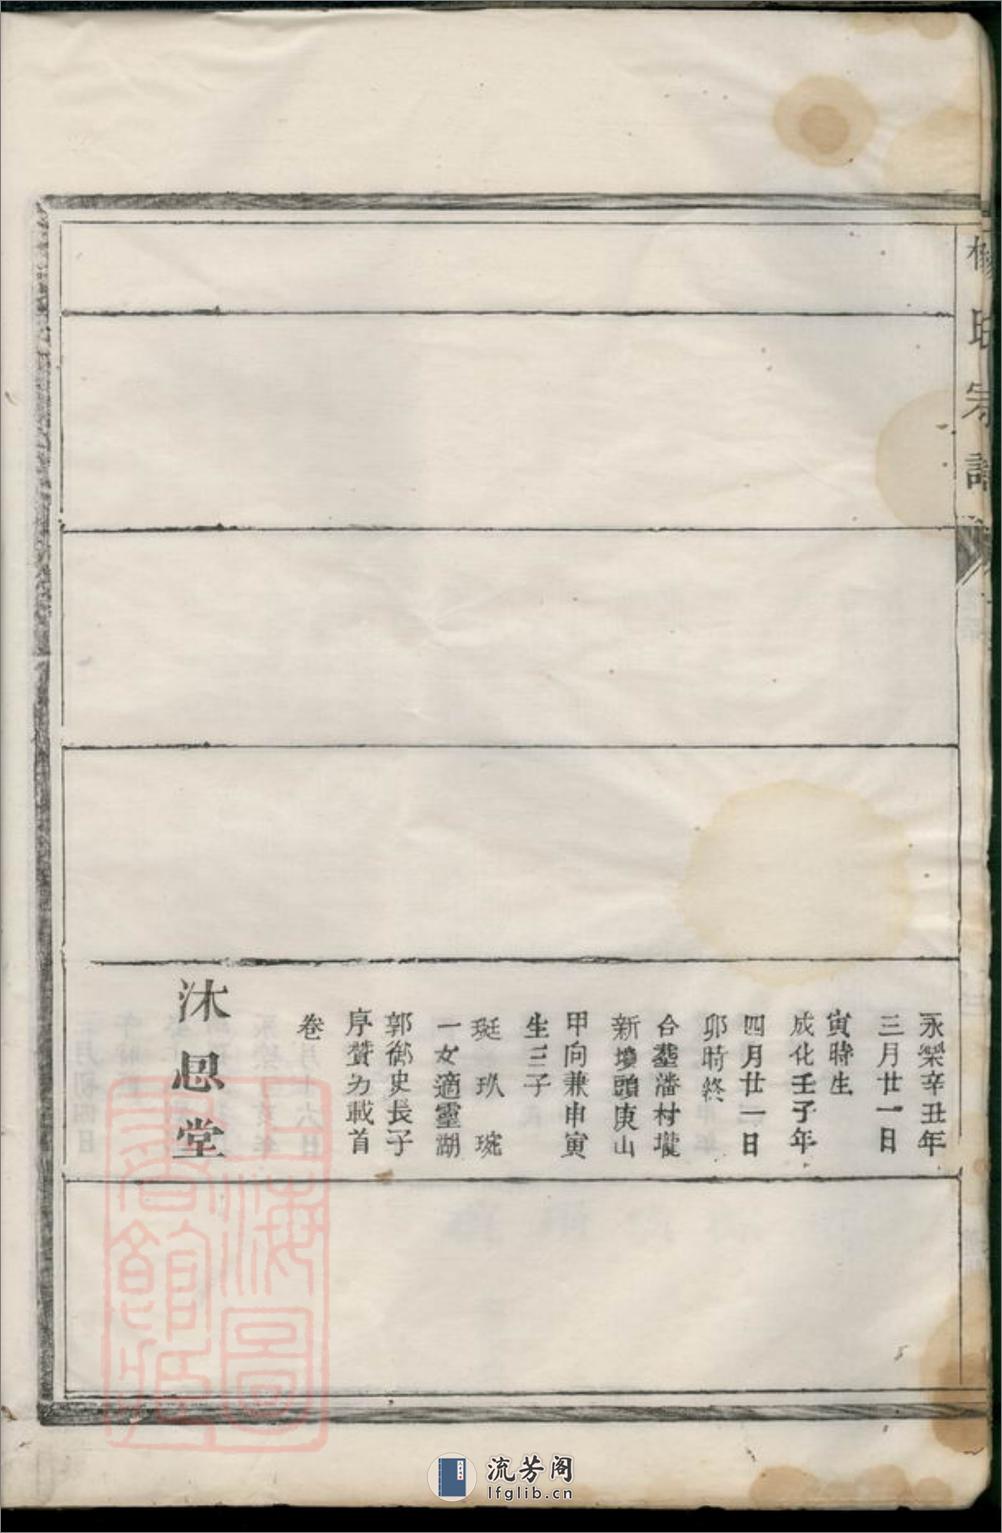 氏宗譜
永樂辛丑年
三月廿一日
寅時生
成化壬子年
四月廿一日
卯時終
合塟潘村壠
新墳頭庚山
甲向兼申寅
生三子
珽 玖 琓
一女適靈湖
郭御史長子
序贊另載首
卷
沐恩堂
上海圖書館藏
流芳阁
lfglib.cn